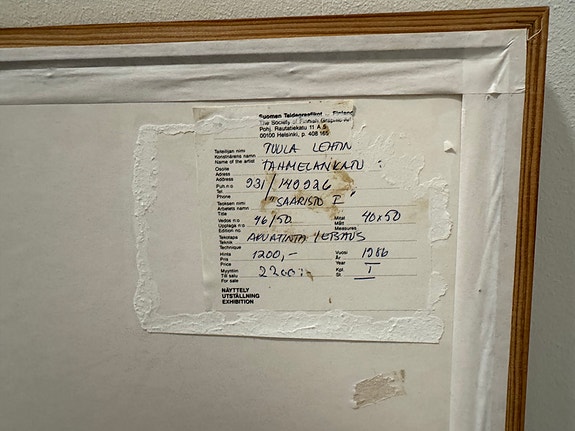 Suomen Taidegraafikot – Finland
The Society of Finnish Graphic Ar
Pohj. Rautatiekatu 11 A 5
00100 Helsinki, p. 408 165
Taiteilijan nimi
Konstnärens namn
Name of the artist
TUULA LEHTINEN
Osoite
Adress
Address
TAHMELANKATU
Puh.n:o
Tel.
Phone
931/140926
Teoksen nimi
Arbetets namn
Title
"SAARISTO I"
Vedos n:o
Upplaga n:o
Edition no.
46/50
Mitat
Mått
Measures
40x50
Tekotapa
Teknik
Technique
AKVATINTA / ETSAUS
Hinta
Pris
Price
1200,-
Vuosi
År
Year
1986
Myyntiin
Till salu
For sale
2200:-
Kpl.
St.
I
NÄYTTELY
UTSTÄLLNING
EXHIBITION